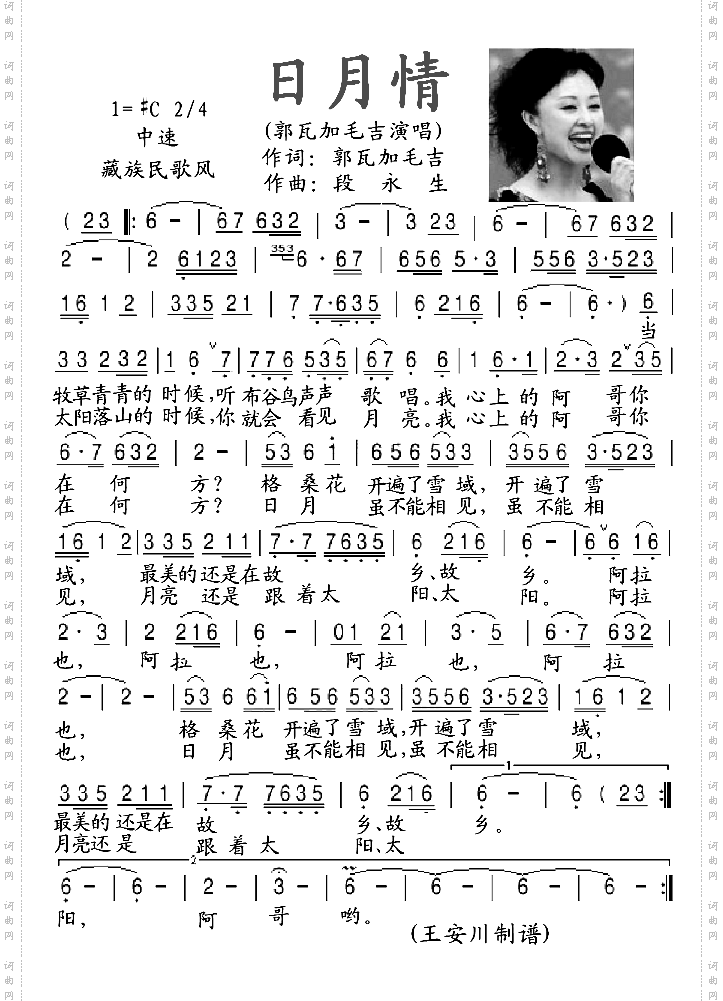 日月情
1=♯C 2/4
中速
藏族民歌风
(郭瓦加毛吉演唱)
作词：郭瓦加毛吉
作曲：段永生
( 23 ‖: 6 – | 67 632 | 3 – | 3 23 | 6 – | 67 632 |
2 – | 2 6123 | 353 6 · 67 | 656 5·3 | 556 3·523 |
16 1 2 | 335 21 | 7 7·635 | 6 216 | 6 – | 6 · ) 6 |
当
33 232 | 1 6 ˇ 7 | 776 535 | 67 6 6 | 1 6·1 | 2·3 2 ˇ 35 |
牧草青青的 时候，听 布谷鸟声声 歌 唱。我 心上 的 阿 哥你
太阳落山的 时候，你 就会 看见 月 亮。我 心上 的 阿 哥你
6·7 632 | 2 – | 53 6 1 | 656 533 | 3556 3·523 |
在 何 方？ 格 桑花 开遍了雪域，开 遍了 雪
在 何 方？ 日 月 虽不能相见，虽 不能 相
16 1 2 | 335 211 | 7·7 7635 | 6 216 | 6 – | 6 ˇ 6 16 |
域， 最美的还是在故 乡、故 乡。 阿拉
见， 月亮 还是 跟 着太 阳、太 阳。 阿拉
2·3 | 2 216 | 6 – | 01 21 | 3·5 | 6·7 632 |
也， 阿 拉 也， 阿 拉 也， 阿 拉
2 – | 2 – | 53 6 61 | 6 56 533 | 3556 3·523 | 16 1 2 |
也， 格 桑花 开遍了雪 域，开 遍了雪 域，
也， 日 月 虽不能相 见，虽 不能相 见，
1
335 211 | 7·7 7635 | 6 216 | 6 – | 6 ( 23 :‖
最美的 还是在 故 乡、故 乡。
月亮还 是 跟 着 太 阳、太
2
6 – | 6 – | 2 – | 3 – | 6 – | 6 – | 6 – | 6 – :‖
阳， 阿 哥 哟。
(王安川制谱)